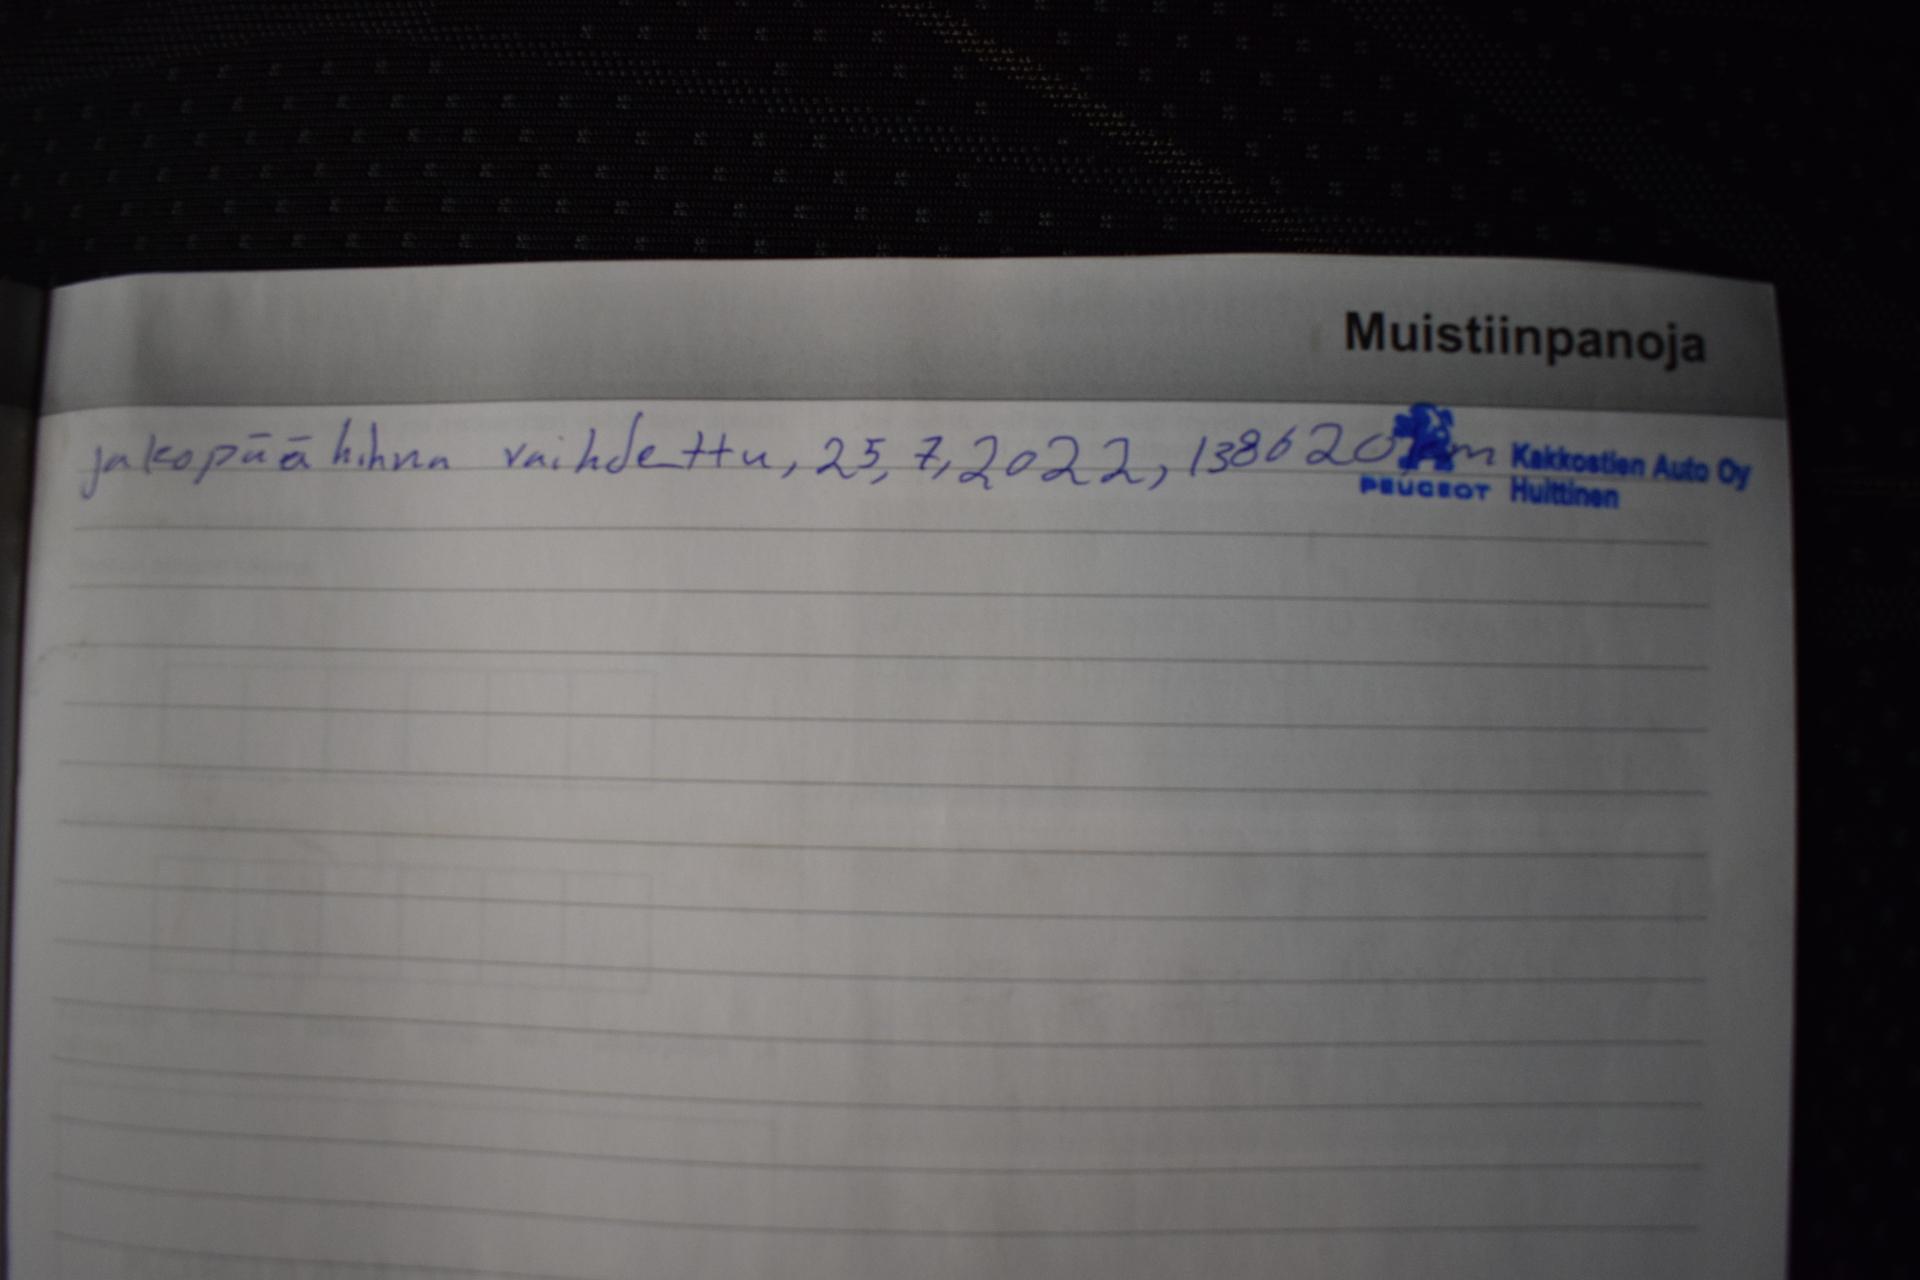 Muistiinpanoja
jakopäähihna vaihdettu, 25, 7, 2022, 138620 km
Kakkostien Auto Oy
PEUGEOT Huittinen